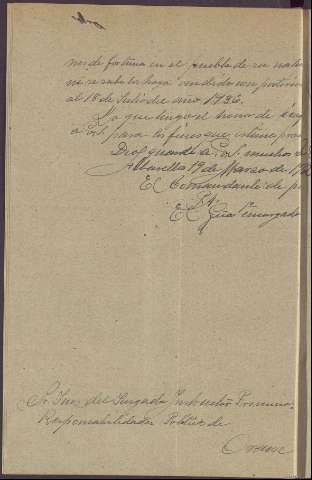 nes de fortuna en el pueblo de su natu
ni se sabe los haya vendido con posterio
al 18 de Julio del año 1936.
Lo que tengo el honor de
a V.S. para los fines que estime
Dios guarde a V.S. muchos
19 de Marzo de
El Comandante de
El Gua encargado
Sr. Juez del Juzgado Instructor Provincial
Responsabilidades Políticas de
Orense